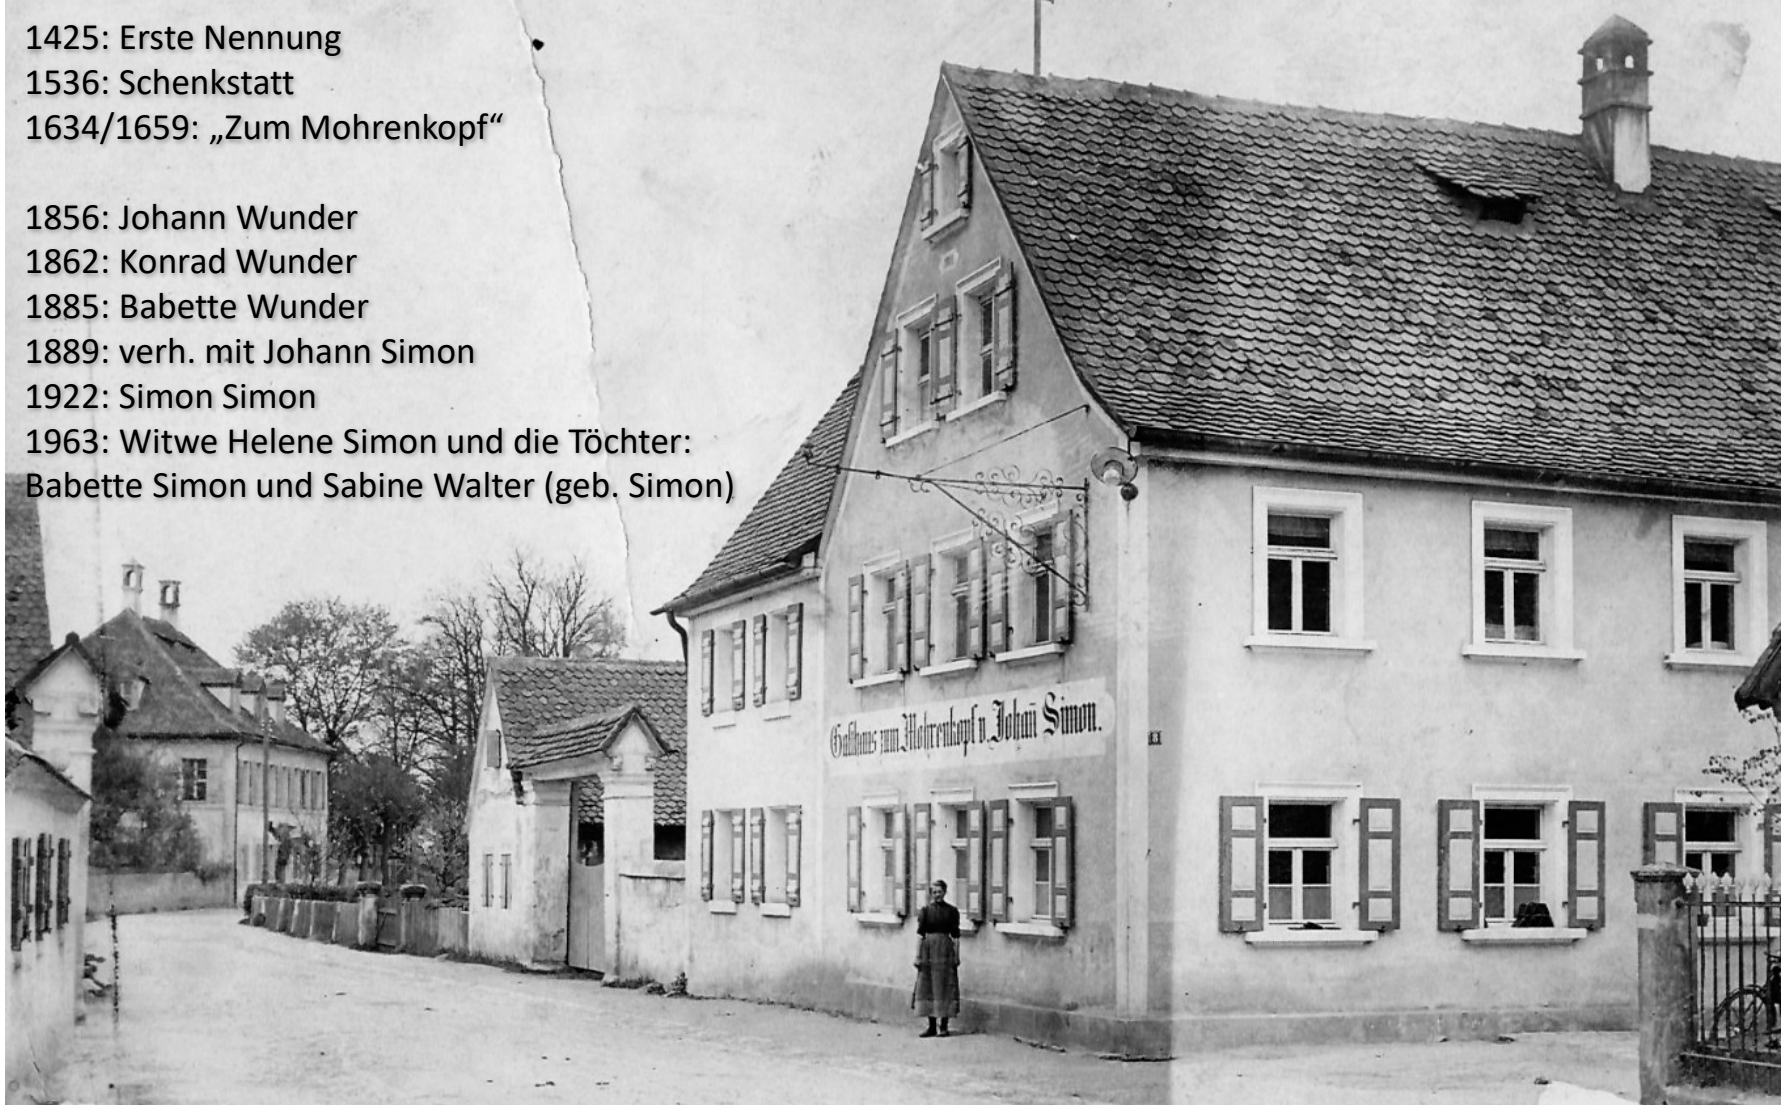 1425: Erste Nennung
1536: Schenkstatt
1634/1659: „Zum Mohrenkopf“
1856: Johann Wunder
1862: Konrad Wunder
1885: Babette Wunder
1889: verh. mit Johann Simon
1922: Simon Simon
1963: Witwe Helene Simon und die Töchter:
Babette Simon und Sabine Walter (geb. Simon)
Gasthaus zum Mohrenkopf v. Johañ Simon.
8